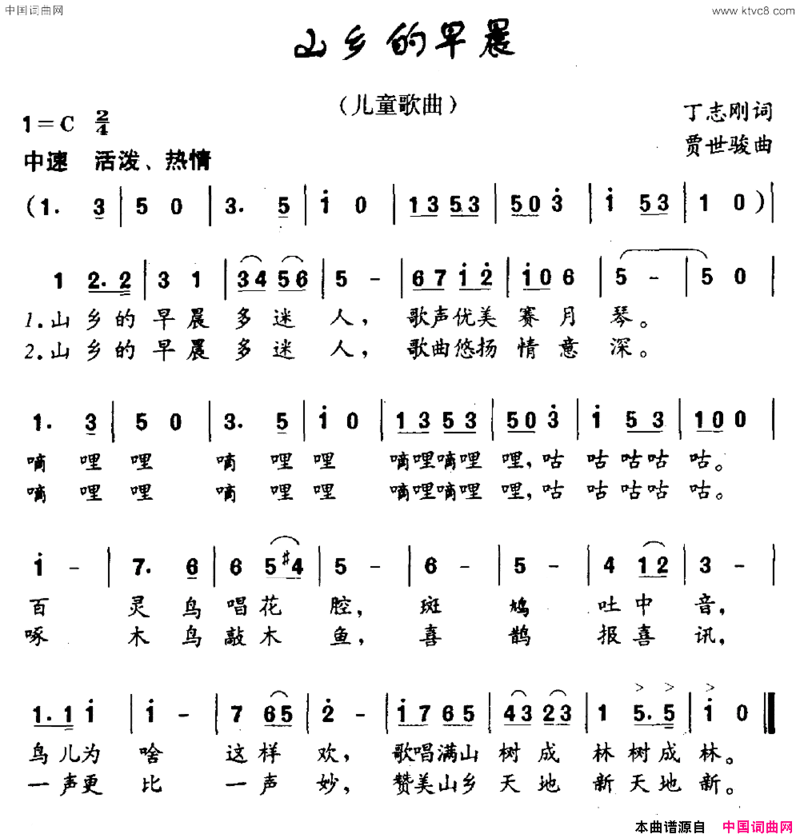 中国词曲网
www.ktvc8.com
山乡的早晨
(儿童歌曲)
1=C 2/4
丁志刚词
中速 活泼、热情
贾世骏曲
(1. 3 | 5 0 | 3. 5 | i 0 | 1353 | 503 | i 53 | 1 0)|
1 2.2 | 3 1 | 34 56 | 5 - | 67 i2 | i06 | 5 - | 5 0
1.山乡的早晨多迷人, 歌声优美赛月琴。
2.山乡的早晨多迷人, 歌曲悠扬情意深。
1. 3 | 5 0 | 3. 5 | i 0 | 1353 | 503 | i 53 | 100 |
嘀哩哩 嘀哩哩 嘀哩嘀哩哩,咕咕咕咕咕。
嘀哩哩 嘀哩哩 嘀哩嘀哩哩,咕咕咕咕咕。
i - | 7. 6 | 6 5#4 | 5 - | 6 - | 5 - | 4 12 | 3 - |
百灵鸟唱花腔, 斑鸠吐中音,
啄木鸟敲木鱼, 喜鹊报喜讯,
1.1 i | i - | 7 65 | 2 - | i765 | 43 23 | 1 5.5 | i 0 ‖
鸟儿为啥这样欢, 歌唱满山树成林树成林。
一声更比一声妙, 赞美山乡天地新天地新。
本曲谱源自 中国词曲网